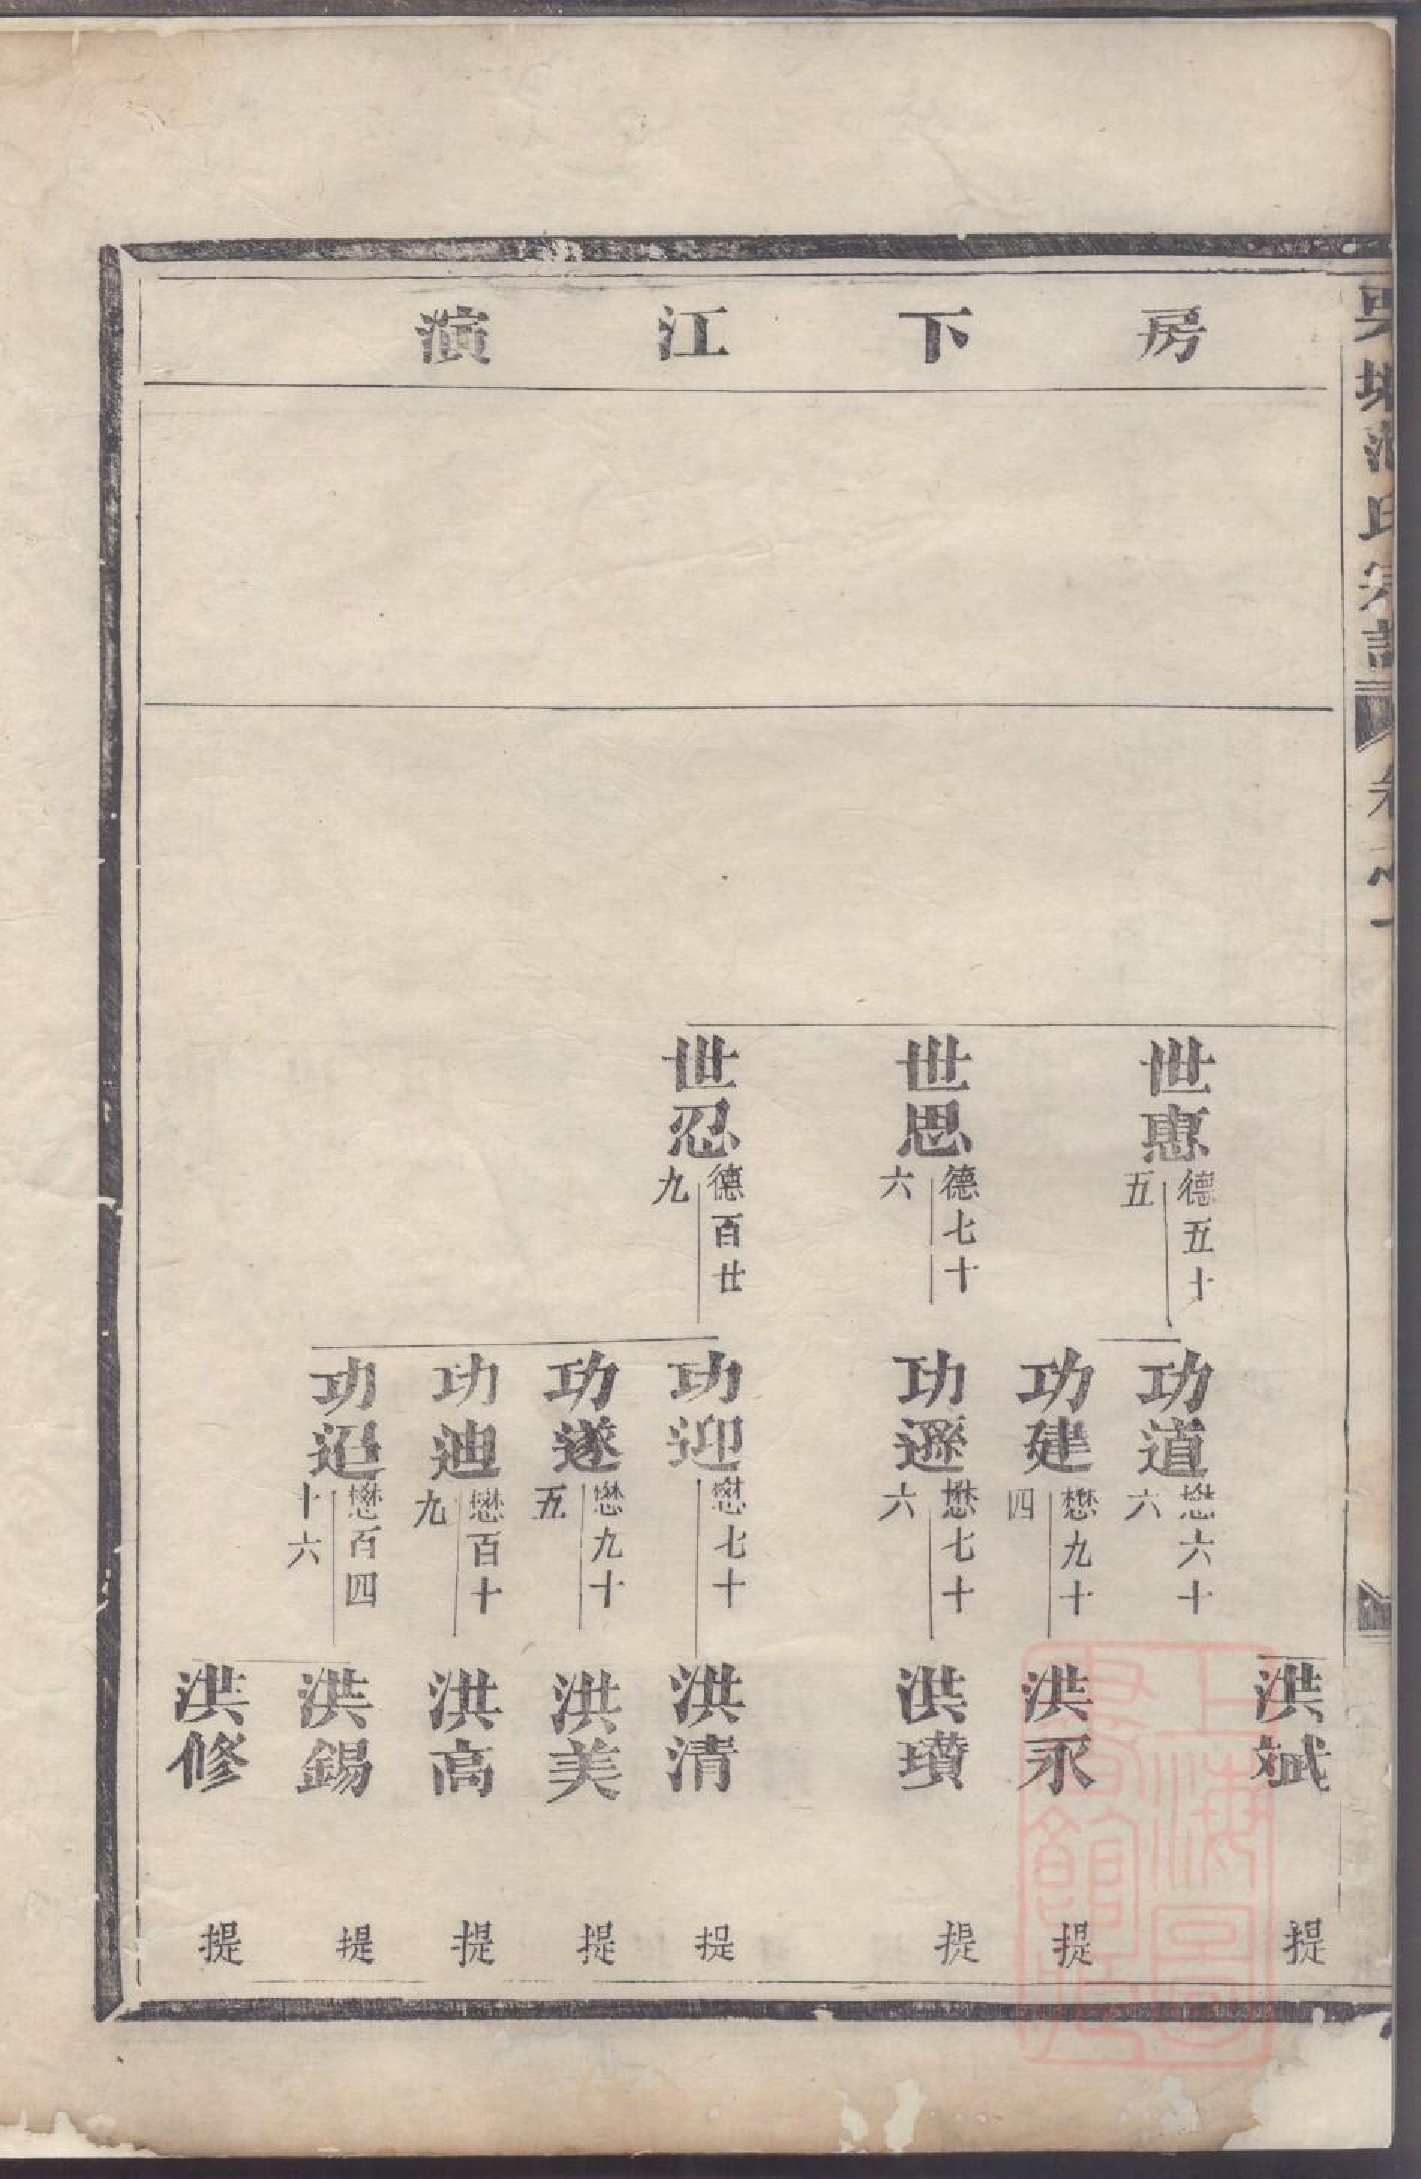 房下江演
氏
世惠 德五十五
世思 德七十六
世忍 德百廿九
功道 懋六十六
功建 懋九十四
功遜 懋七十六
功迎 懋七十
功遂 懋九十五
功迪 懋百十九
功迢 懋百四十六
洪斌 提
洪永 提
洪璜 提
洪清 提
洪美 提
洪高 提
洪錫 提
洪修 提
上海圖書館藏